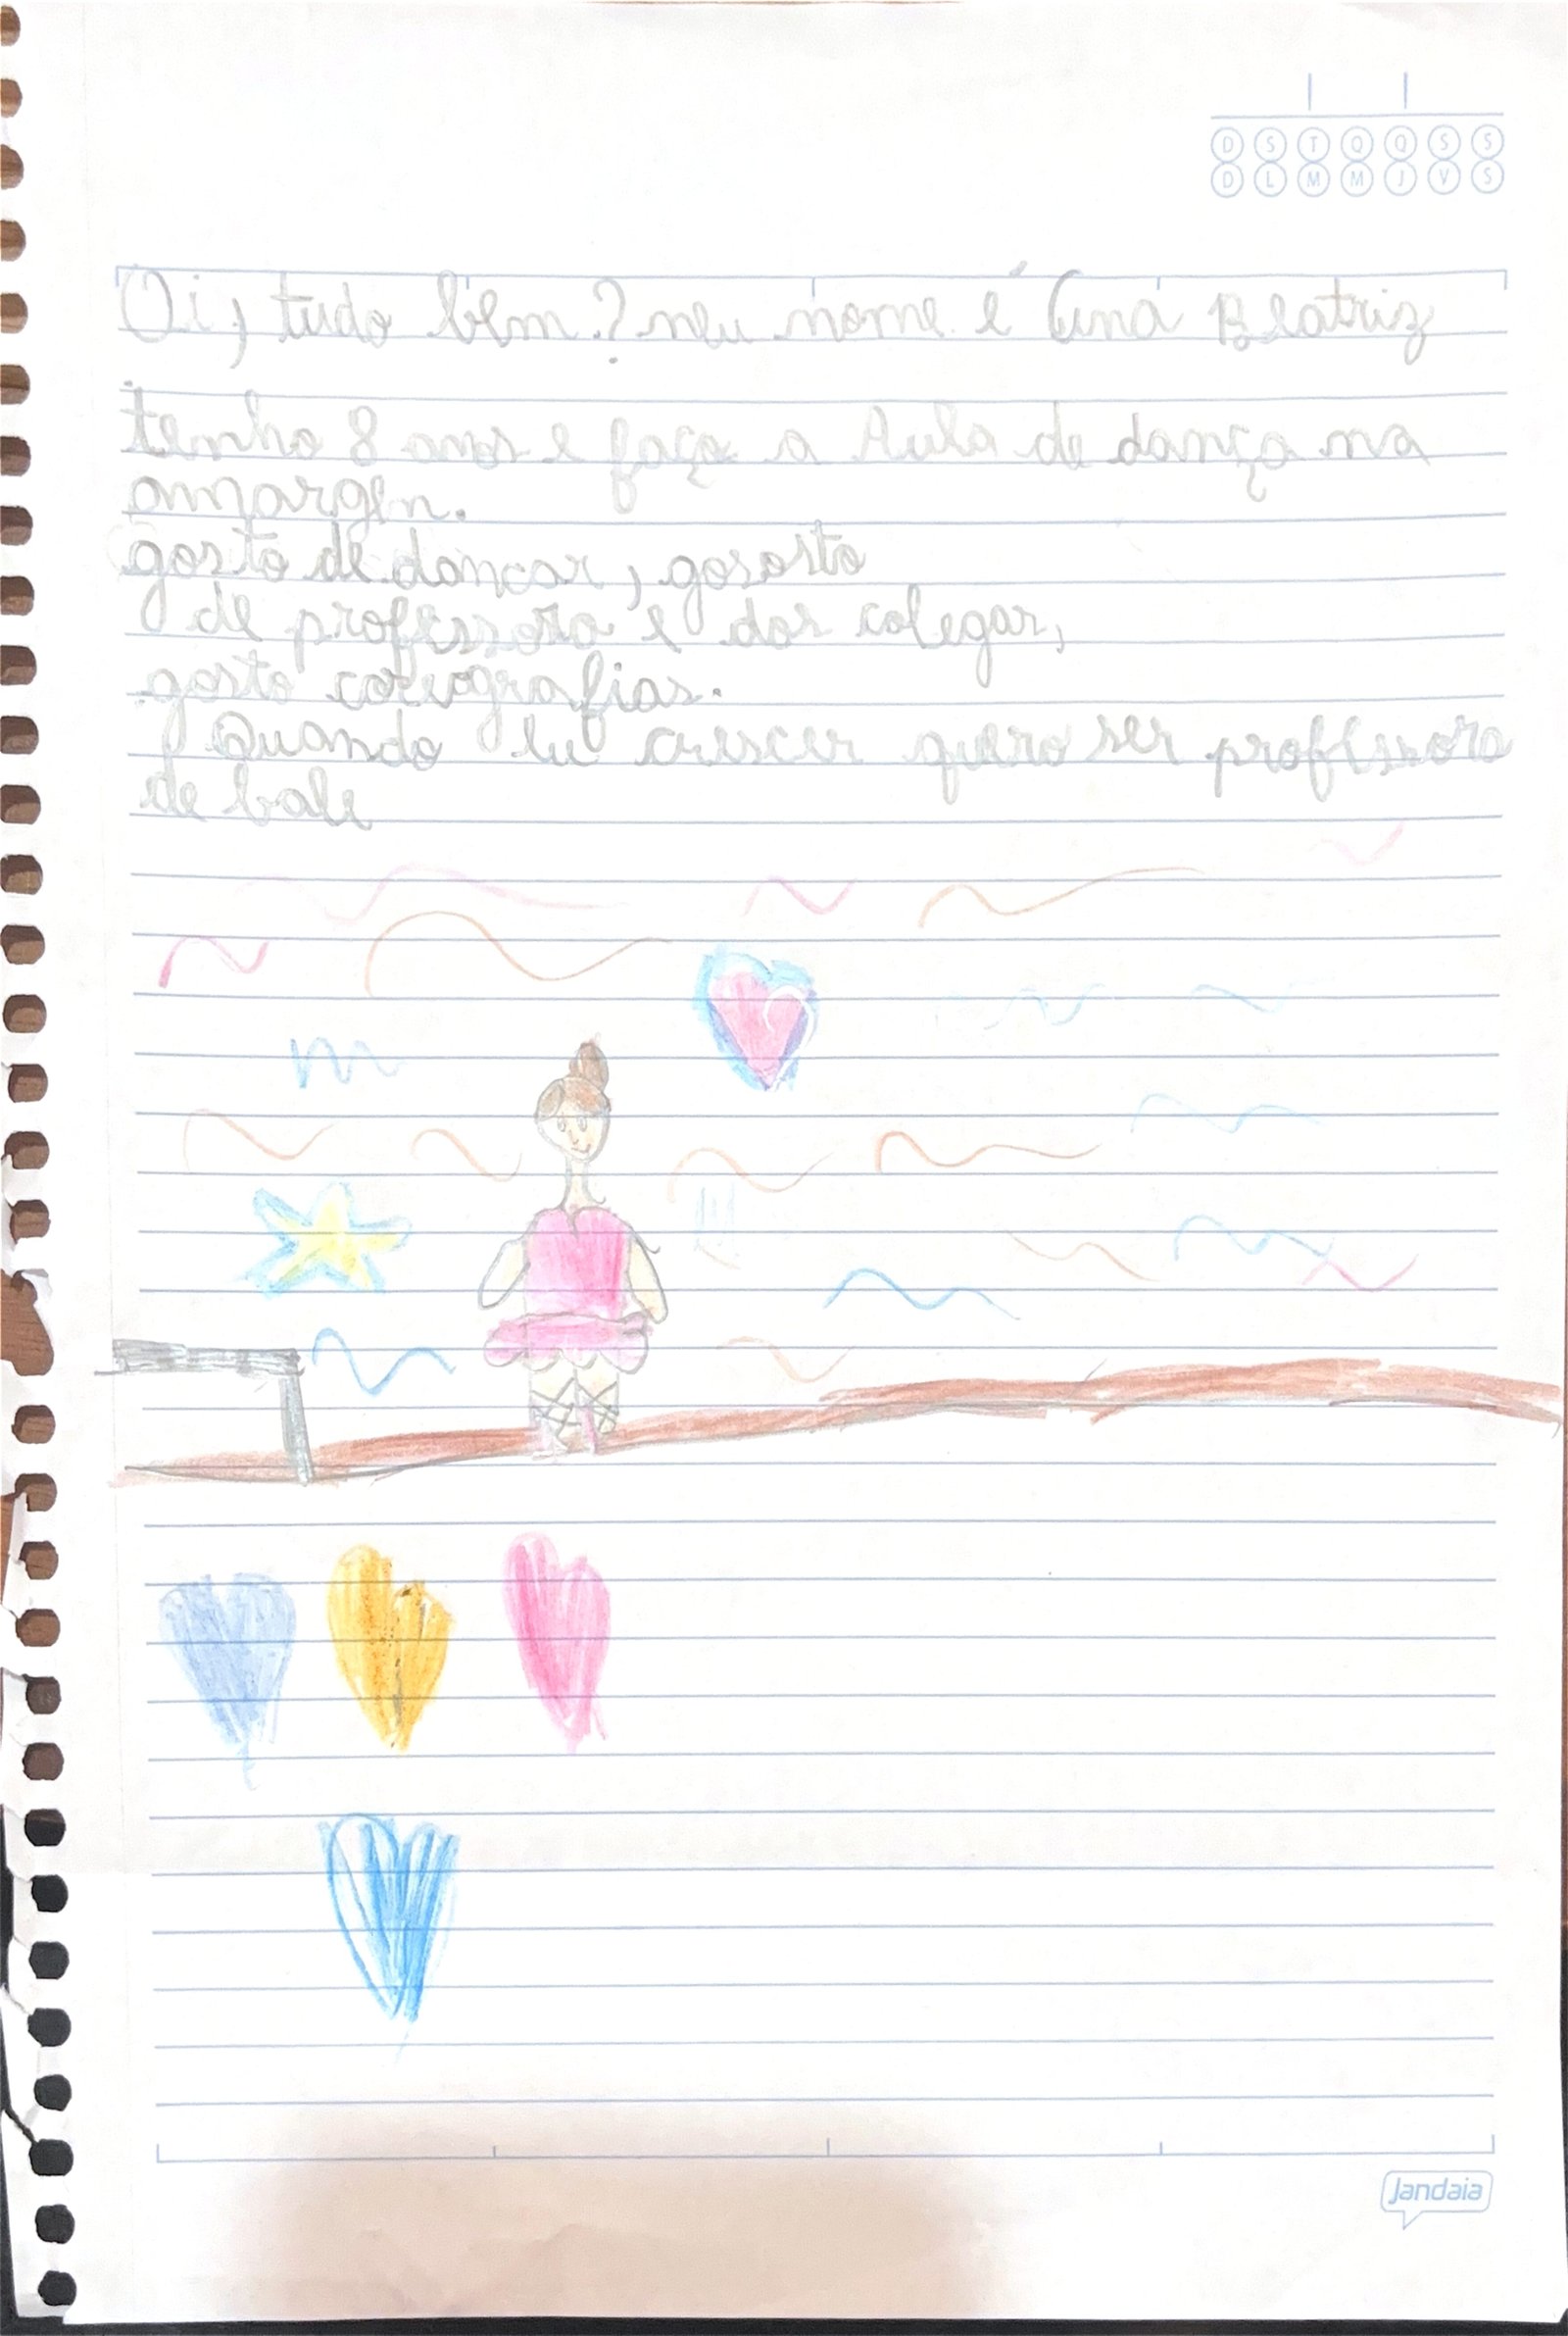 D S T Q Q S S
D L M M J V S
Oi, tudo bem? meu nome é Ana Beatriz
tenho 8 anos e faço a Aula de dança na
amargen.
gosto de dancar, gososto
de professora e dos colegas,
gosto coreografias.
Quando eu crescer quero ser professora
de bale
Jandaia